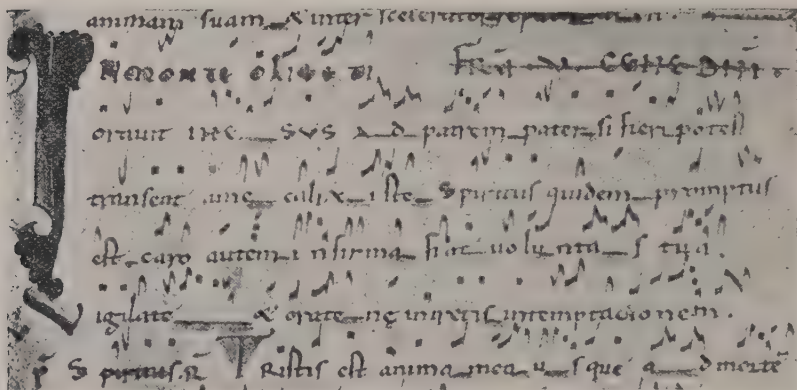 animam suam & inter sceleratos reputatus
IN MONTE OLIVETI
oravit IHE SVS AD patrem pater si fieri potest
transeat a me calix iste Spiritus quidem promptus
est caro autem infirma fiat voluntas tua.
Vigilate & orate ne intretis in temptacionem.
Spiritus. TRistis est anima mea usque ad morte